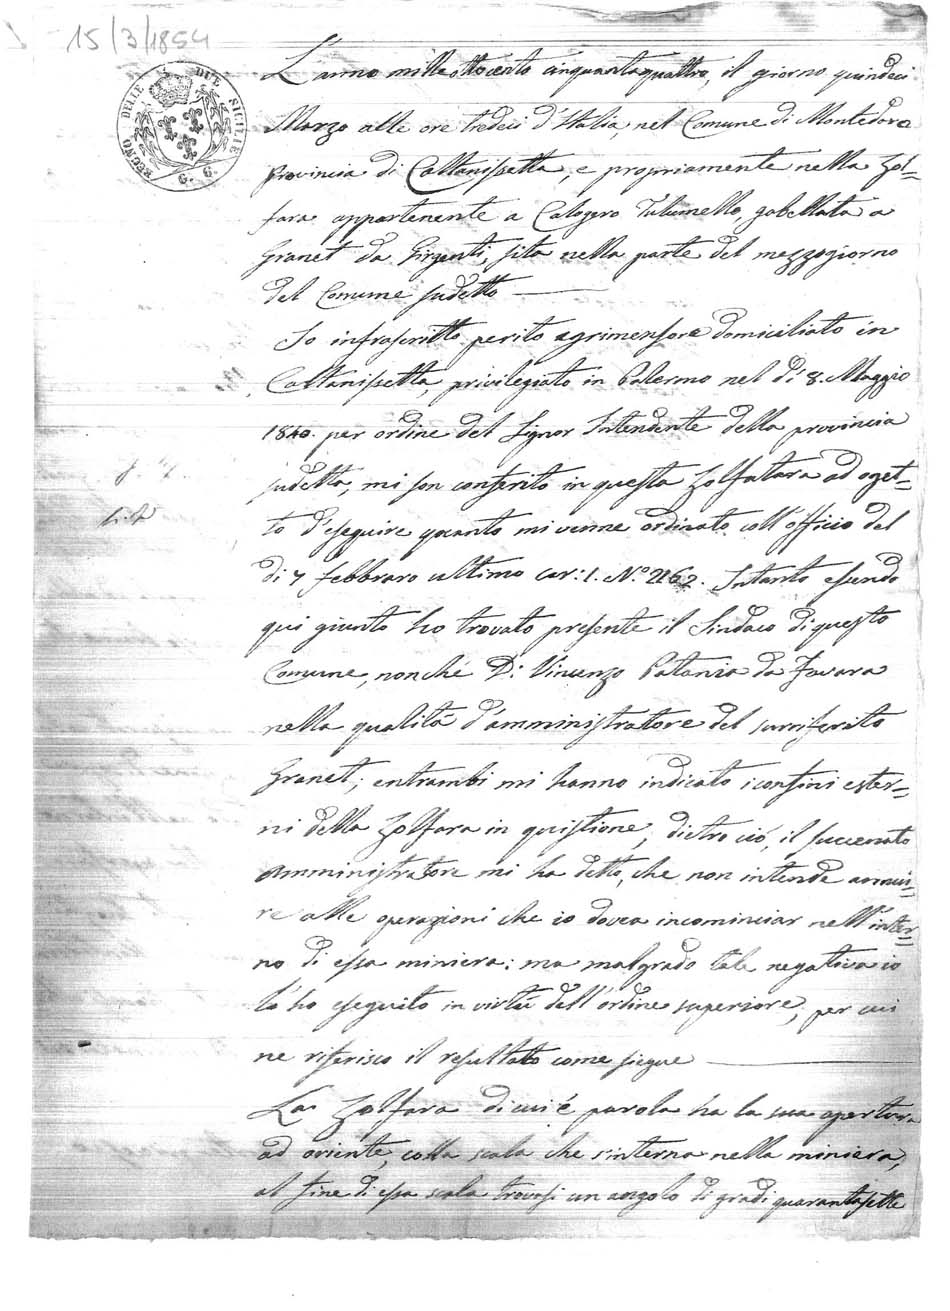 15/3/1854
REGNO DELLE DUE SICILIE
G. G.
L'anno mille ottocento cinquantaquattro, il giorno quindeci
Marzo alle ore tredeci d'Italia, nel Comune di Montedoro
provincia di Caltanissetta, e propriamente nella Zol=
fara appartenente a Calogero Tulumello, gabellata a
Granet da Girgenti, sita nella parte del mezzogiorno
del Comune sudetto
Io infrascritto perito agrimensore domiciliato in
Caltanissetta, privilegiato in Palermo nel dì 8. Maggio
1840. per ordine del Signor Intendente della provincia
sudetta, mi son conferito in questa Zolfatara ad oget=
to d'eseguire quanto mi venne ordinato coll'officio del
dì 7 febbraro ultimo Car: 1. N.o 2162. Intanto essendo
qui giunto ho trovato presente il Sindaco di questo
Comune, nonché D: Vincenzo Patania da Favara
nella qualità d'amministratore del surriferito
Granet; entrambi mi hanno indicato i confini ester=
ni della Zolfara in quistione, dietro ciò, il succennato
amministratore mi ha detto, che non intende annui=
re alle operazioni che io dovea incominciar nell'inter=
no di essa miniera: ma malgrado tale negativa io
là ho eseguito in virtù dell'ordine superiore, per cui
ne riferisco il resultato come siegue
La Zolfara di cui è parola ha la sua apertura
ad oriente, colla scala che s'interna nella miniera,
al fine di essa scala trovasi un angolo di gradi quarantasette